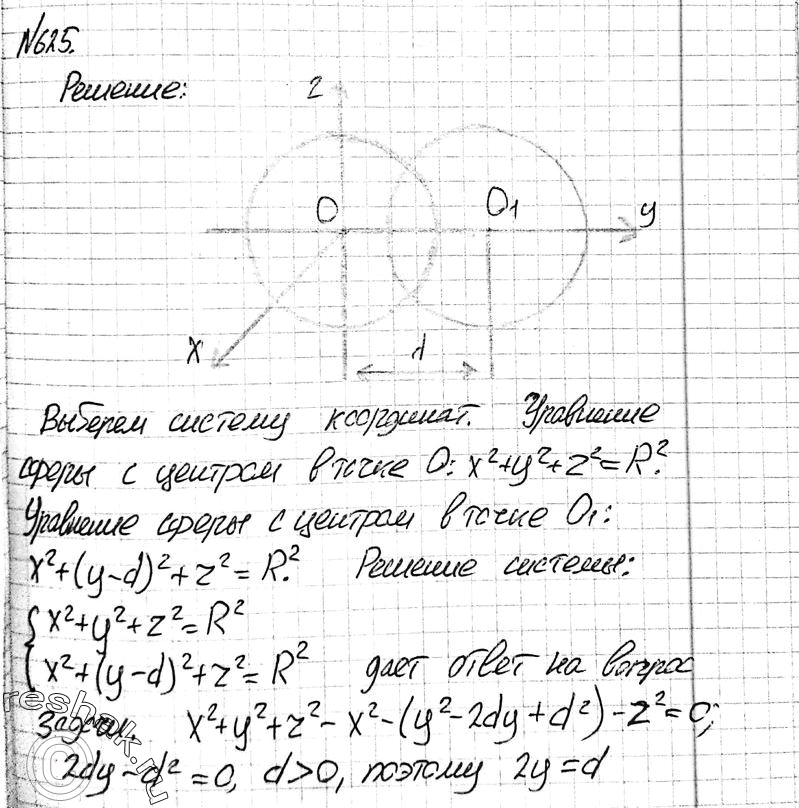 N625.
Решение:
z
O
O₁
y
x
d
Выберем систему координат. Уравнение
сферы с центром в точке O: x²+y²+z²=R².
Уравнение сферы с центром в точке O₁:
x²+(y-d)²+z²=R². Решение системы:
{x²+y²+z²=R²
{x²+(y-d)²+z²=R² дает ответ на вопрос
задачи. x²+y²+z²-x²-(y²-2dy+d²)-z²=0;
2dy-d²=0, d>0, поэтому 2y=d
© reshak.ru